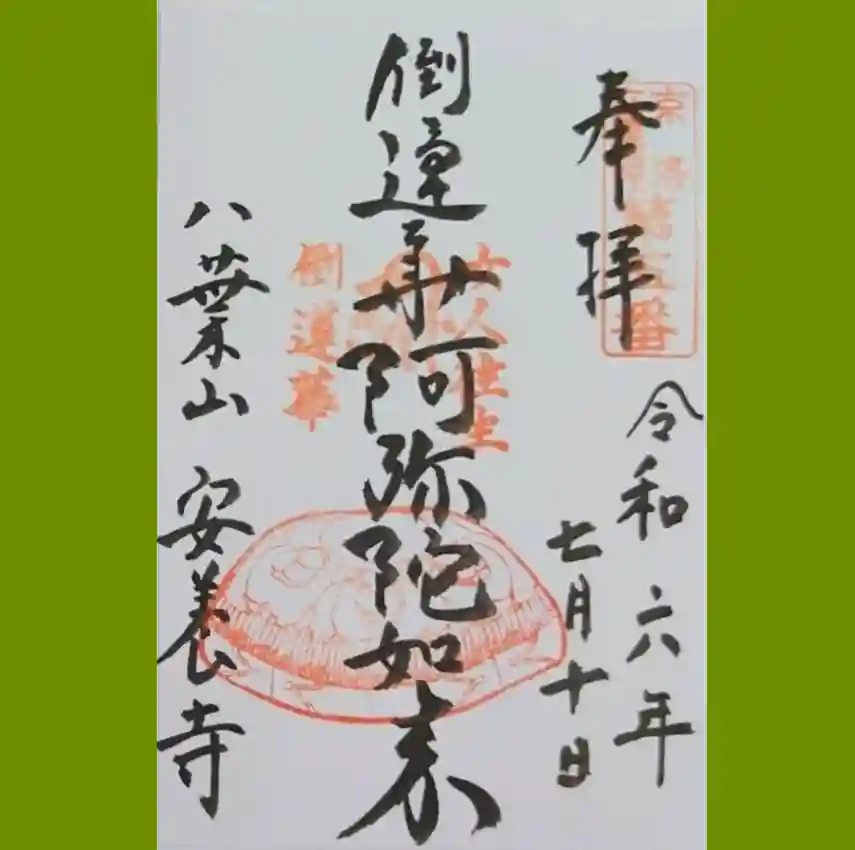 奉拝
令和六年
七月十日
女人往生
倒蓮華阿弥陀如来
倒蓮華
八葉山 安養寺